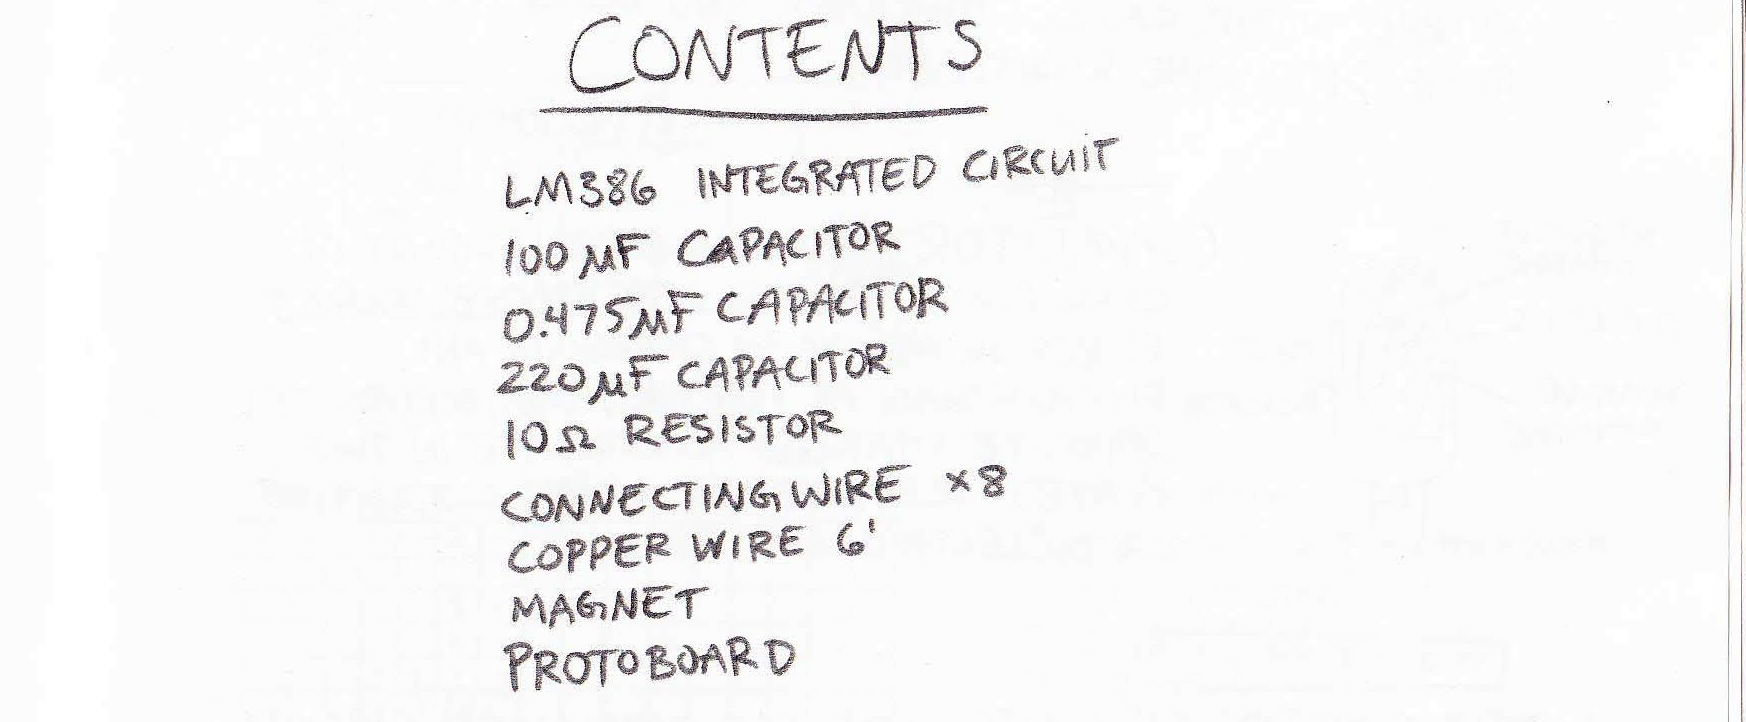 CONTENTS
LM386 INTEGRATED CIRCUIT
100 μF CAPACITOR
0.475 μF CAPACITOR
220 μF CAPACITOR
10Ω RESISTOR
CONNECTING WIRE x8
COPPER WIRE 6'
MAGNET
PROTOBOARD